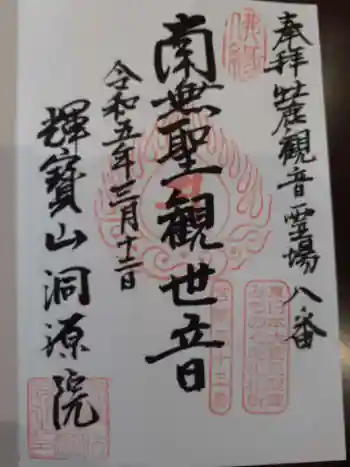 奉拝 牡鹿観音霊場八番
南無聖觀世音
令和五年三月十二日
輝寶山洞源院